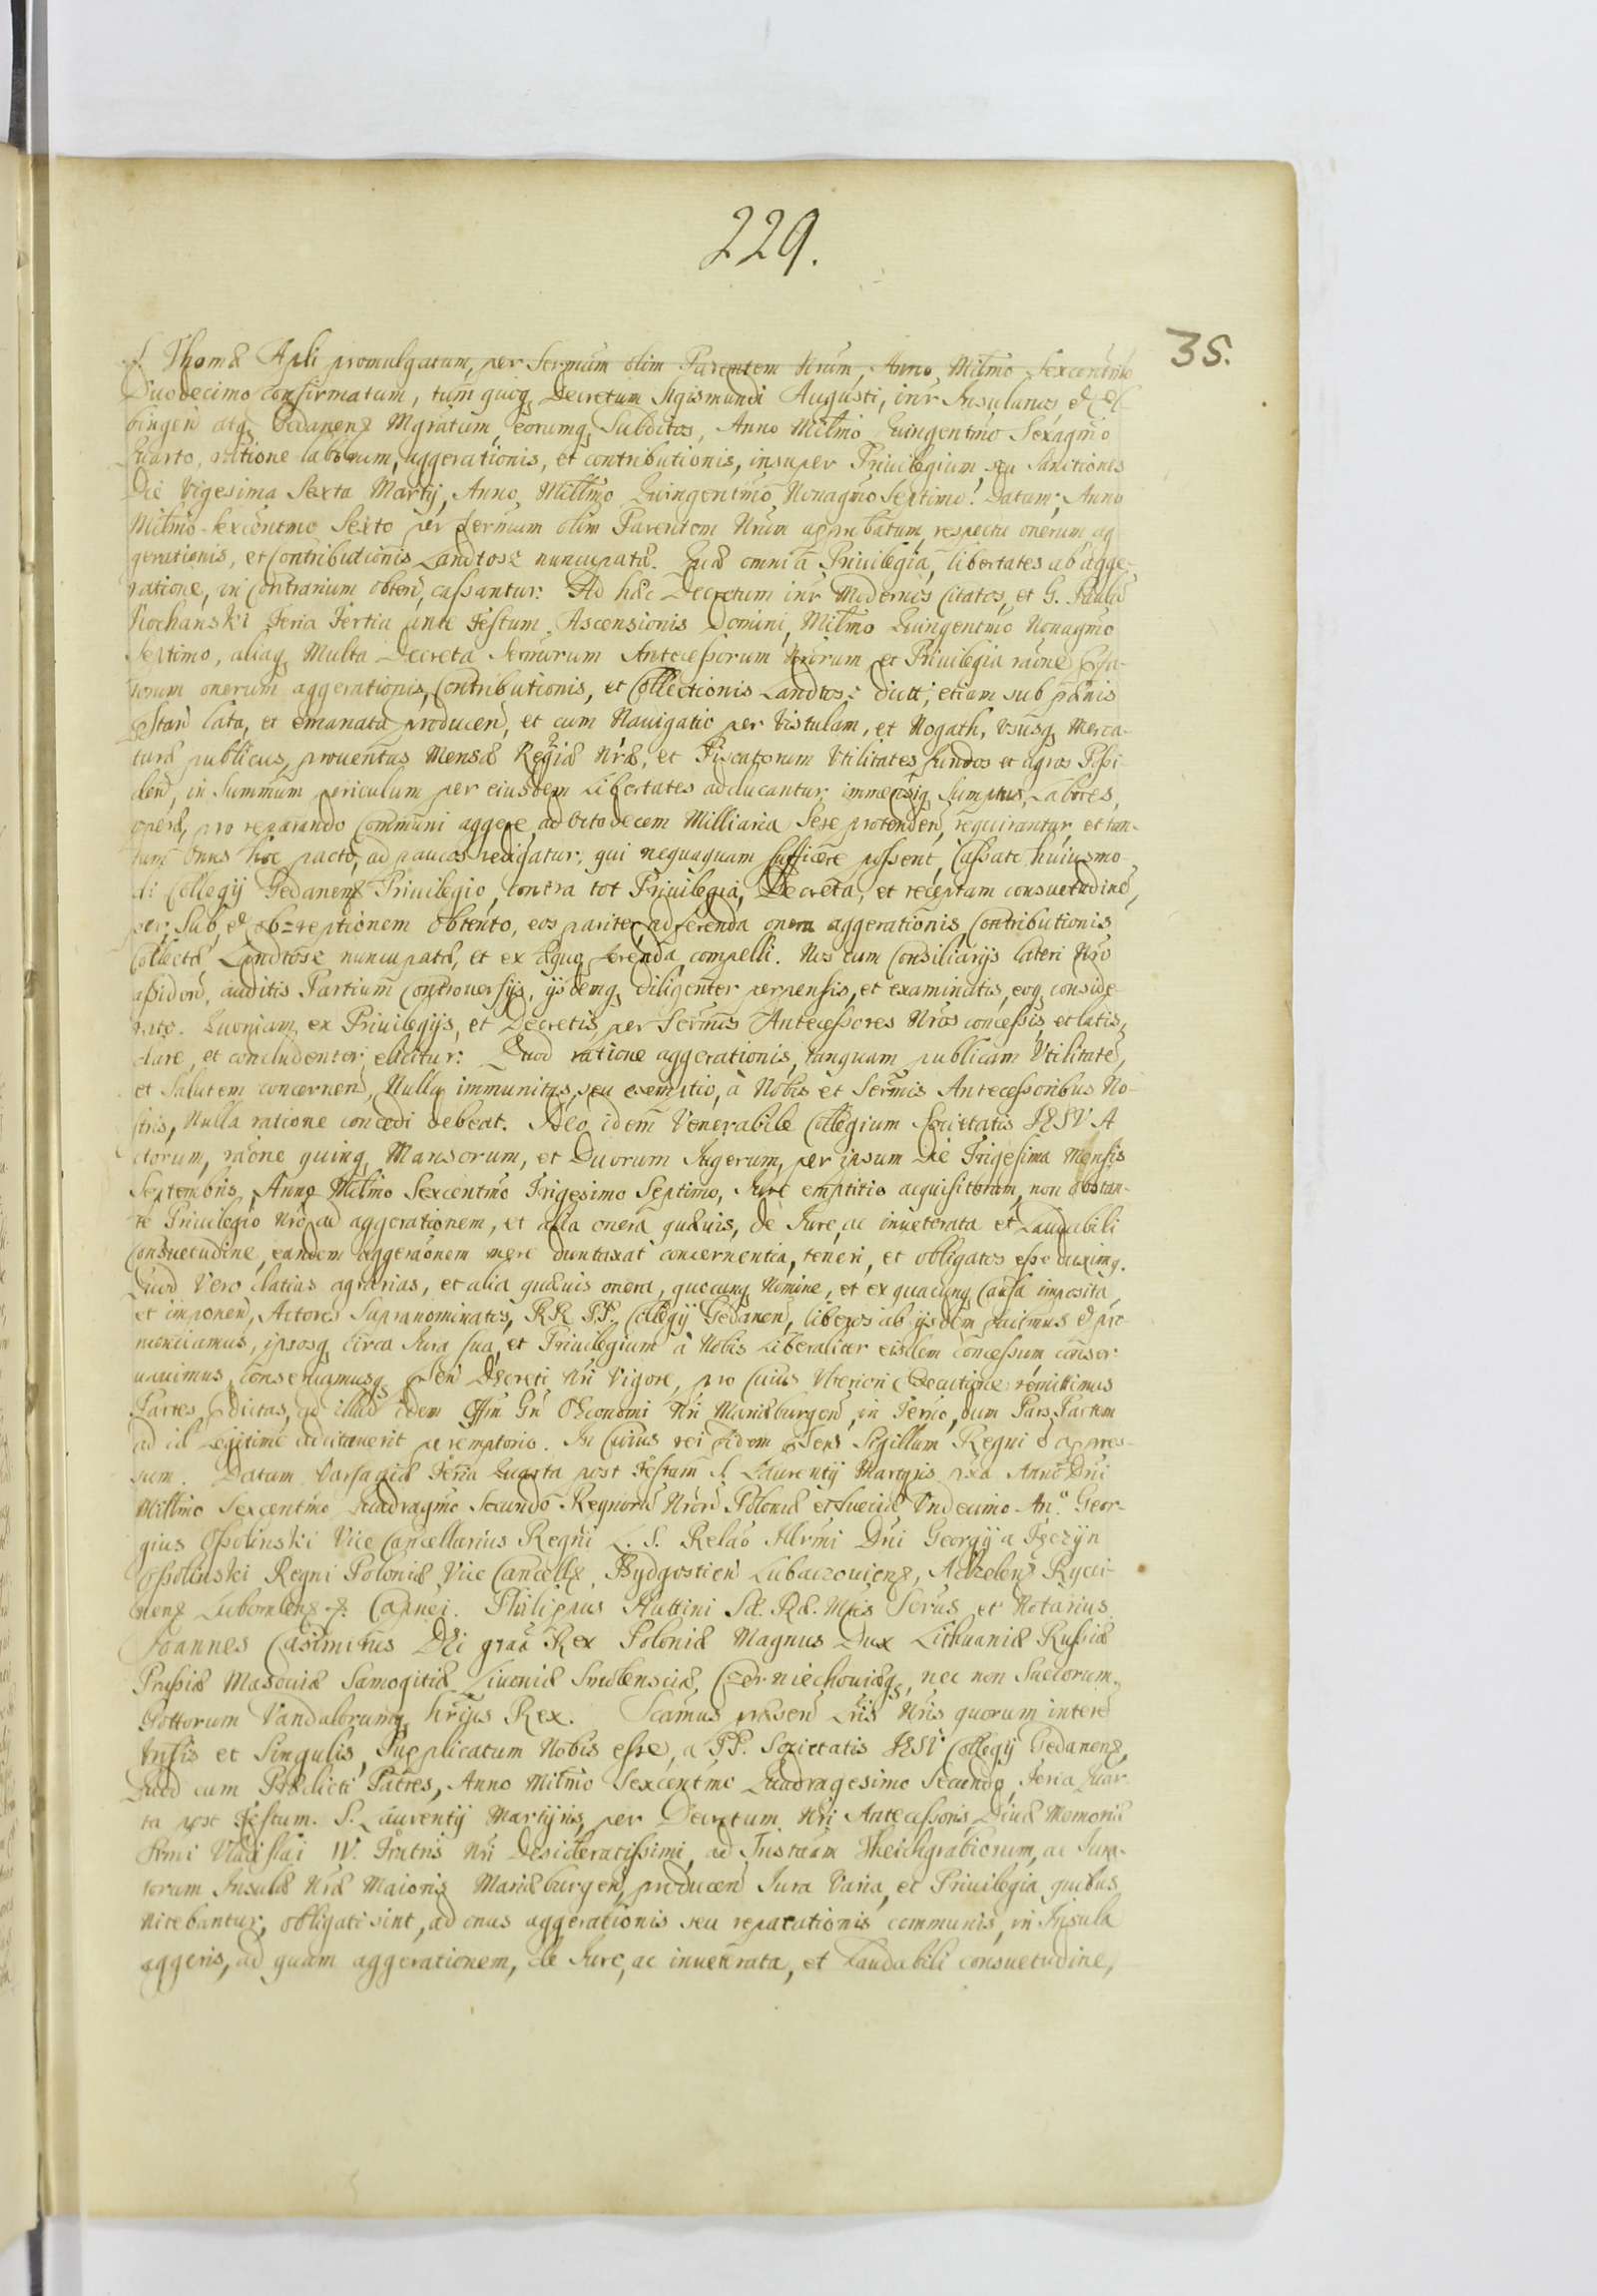 229.
35.
S. Thomæ Apli promulgatum, per Sermum olim Parentem Nrum, Anno Milmo Sexcentmo
Duodecimo confirmatum, tum quoq Decretum Sigismundi Augusti, intr Insulanos, et El-
bingen atq Gedanens Mgratum, eorumq Subditos, Anno Milmo Quingentmo Sexagmo
Quarto, ratione laborum, aggerationis, et contributionis, insuper Priuilegium seu Sanctiones
Die Vigesima Sexta Martij, Anno Millmo Quingentmo Nonagmo Septimo. Datum; Anno
Milmo Sexcentmo Sexto per Sermum olim Parentem Nrum approbatum, respectu onerum ag
gerationis, et Contributionis Landtosz nuncupatæ. Quæ omnia Priuilegia, libertates ab agge-
ratione, in Contrarium obten, cassantur: Ad hæc Decretum intr Modernos Citatos, et G. Paulu
Kochanski Feria Tertia ante Festum Ascensionis Domini, Milmo Quingentmo Nonagmo
Septimo, aliaq Multa Decreta Sermorum Antecessorum Nrorum et Priuilegia raone
torum onerum aggerationis, Contributionis, et Collectionis Landtosz dictæ, etiam sub pænis
lata, et emanata producen, et cum Nauigatio per Vistulam, et Nogath, Vsusq Merca-
turæ publicus, prouentus Mensæ Regiæ Nræ, et Piscatorum Vtilitates fundos et agros Possi
den, in Summum periculum per eiusdem Libertates adducantur, immensiq Sumptus, Labores,
operæ, pro reparando Communi aggere, ad octodecem Milliaria Sese protenden, requirantur, et tan-
tum Onus hoc pacto, ad paucos redigatur, qui nequaquam Sufficere possent, Cassato huiusmo-
di Collegij Gedanens Priuilegio, contra tot Priuilegia, Decreta, et receptam consuetudine,
per Sub, et ob=reptionem obtento, eos pariter ad ferenda onera aggerationis, Contributionis
Collectæ Landtosz nuncupatæ, et ex Æquo ferenda compelli. Nos cum Consiliarijs lateri Nro
assiden, auditis Partium Controuersijs, ijsdemq diligenter perpensis, et examinatis, eoq conside-
rato. Quoniam ex Priuilegijs, et Decretis, per Sermos Antecessores Nros concessis, et latis,
clare, et concludenter elicitur: Quod ratione aggerationis, tanquam publicam Vtilitate,
et Salutem concernen, Nulla immunitas, seu exemptio, à Nobis et Sermis Antecessoribus No-
stris, Nulla ratione concedi debeat. Ideo idem Venerabile Collegium Societatis IESV A
ctorum, raone quinq Mansorum, et Duorum Iugerum, per ipsum Die Trigesima Mensis
Septembris, Anno Milmo Sexcentmo Trigesimo Septimo, Iure emptitio acquisitorum, non obstan-
te Priuilegio Nro ad aggerationem, et alia onera quæuis, de Iure, ac inueterata et Laudabili
Consuetudine, eandem aggeraonem mere duntaxat concernentia, teneri, et obligatos esse duximq.
Quod Vero agrarias, et alia quæuis onera, quocunq Nomine, et ex quacunq Causa imposita,
et imponen, Actores Supranominatos, RR PP. Collegij Gedanen, liberos ab ijsdem facimus et pro-
nunciamus, ipsosq circa Iura sua, et Priuilegium à Nobis Liberaliter eisdem concessum conser-
uauimus, conseruamusq Decreti Nri Vigore, pro Cuius Vlteriori Executione remittimus
Partes dictas, ad illud idem Offm Gn OEconomi Nri Mariæburgen, in Termo, dum Pars Partem
ad id Legitime adcitauerit peremptorio. In Cuius rei fidem Sigillum Regni est appres-
sum. Datum Varsauiæ Feria Quarta post Festum S. Laurentij Martyris pxa Anno Dni
Millmo Sexcentmo Quadragmo Secundo Regnoru Nroru Poloniæ et Sueciæ Vndecimo An.º Geor-
gius Ossolinski Vice Cancellarius Regni L. S. Relao Illrmi Dni Georgij a Tęczÿn
Ossolinski Regni Poloniæ Vice Cancell, Bydgostien Lubaczouiens, Adzelens Ryci-
nens Lubomlens Capnei. Philippus Huttini Sæ. Ræ. Mtis Serus et Notarius.
Joannes Casimirus Dei graa Rex Poloniæ Magnus Dux Lithuaniæ Russiæ
Prussiæ Masouiæ Samogitiæ Liuoniæ Smolensciæ, Czerniechouiæq, nec non Suecorum,
Gottorum Vandalorumq hrijus Rex. Scamus præsen Lris Nris quorum intere
Vnsis et Singulis, Supplicatum Nobis esse, a PP. Societatis IESV Collegij Gedanens,
Quod cum Prædicti Patres, Anno Milmo Sexcentmo Quadragesimo Secundo, Feria Quar-
ta post Festum S. Laurentij Martijris, per Decretum Nri Antecessoris, Diuæ Memoriæ
Srmi Vladislai IV. Fratris Nri Desideratissimi, ad Instaam Theichgrabiorum, ac Iura-
torum Insulæ Nræ Maioris Mariæburgen, producen Iura Varia, et Priuilegia quibus
nitebantur, obligati sint, ad onus aggerationis seu reparationis communis, in Insula
aggeris, ad quam aggerationem, de Iure, ac inueterata, et Laudabili consuetudine,